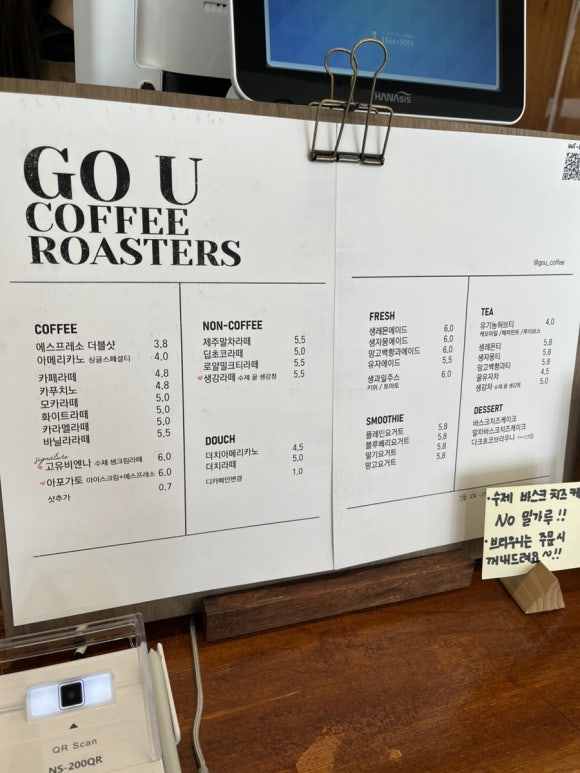 1566-9009
HANASIS
GO U
COFFEE
ROASTERS
@gou_coffee
COFFEE
에스프레소 더블샷 3,8
아메리카노 싱글스페셜티 4,0
카페라떼 4,8
카푸치노 4,8
모카라떼 5,0
화이트라떼 5,0
카라멜라떼 5,0
바닐라라떼 5,5
signature
고유비엔나 수제 생크림라떼 6,0
아포가토 아이스크림+에스프레소 6,0
샷추가 0.7
NON-COFFEE
제주말차라떼 5,5
딥초코라떼 5,0
로얄밀크티라떼 5,5
생강라떼 수제 꿀 생강청 5,5
DOUCH
더치아메리카노 4,5
더치라떼 5,0
디카페인변경 1,0
FRESH
생레몬에이드 6,0
생자몽에이드 6,0
망고백향과에이드 6,0
유자에이드 5,5
생과일주스 6,0
키위 / 토마토
SMOOTHIE
플레인요거트 5,8
블루베리요거트 5,8
딸기요거트 5,8
망고요거트 5,8
TEA
유기농허브티 4,0
케모마일 /페퍼민트 /루이보스
생레몬티 5,8
생자몽티 5,8
망고백향과티 5,8
꿀유자차 4,5
생강차 수제 꿀 생강청 5,0
DESSERT
바스크치즈케이크
말차바스크치즈케이크
다크초코브라우니
·수제 바스크 치즈 케
No 밀가루!!
·브라우니는 주문시
꺼내드려요~!!
QR Scan
NS-200QR